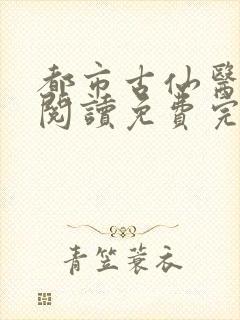 都市古仙醫
閱讀免費完
青笠蓑衣